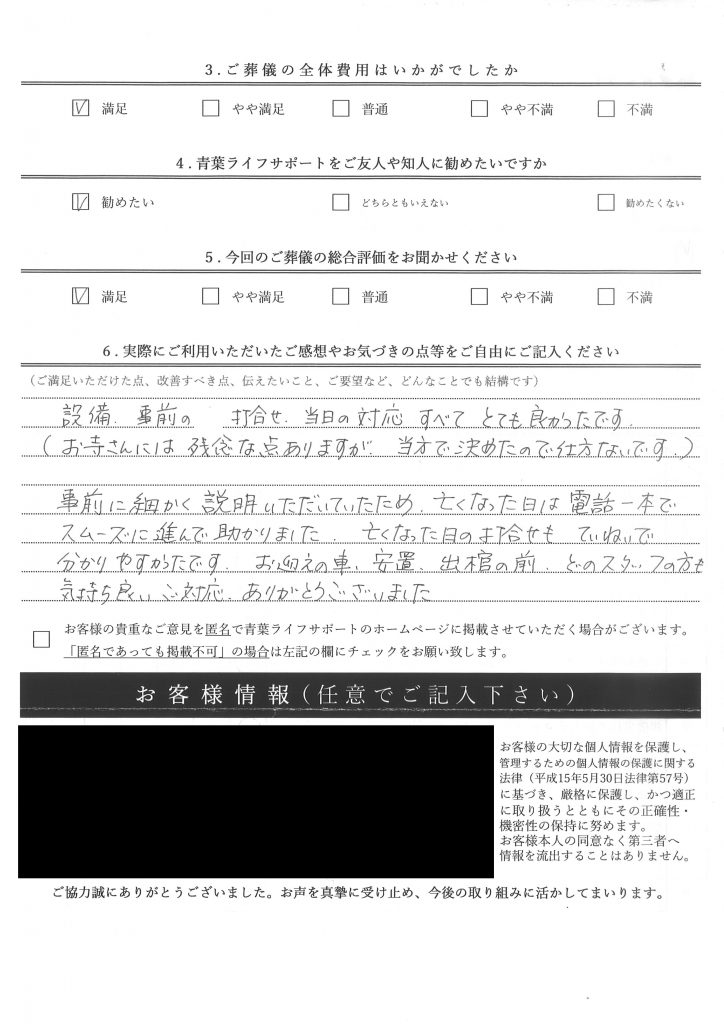 3.ご葬儀の全体費用はいかがでしたか
☑ 満足 □ やや満足 □ 普通 □ やや不満 □ 不満
4.青葉ライフサポートをご友人や知人に勧めたいですか
☑ 勧めたい □ どちらともいえない □ 勧めたくない
5.今回のご葬儀の総合評価をお聞かせください
☑ 満足 □ やや満足 □ 普通 □ やや不満 □ 不満
6.実際にご利用いただいたご感想やお気づきの点等をご自由にご記入ください
(ご満足いただけた点、改善すべき点、伝えたいこと、ご要望など、どんなことでも結構です)
設備、事前の 打合せ、当日の対応 すべて とても良かったです。
(お寺さんには 残念な点ありますが、当方で決めたので仕方ないです。)
事前に細かく説明いただいていたため、亡くなった日は電話一本で
スムーズに進んで助かりました。亡くなった日の打合せも ていねいで
分かりやすかったです。お迎えの車、安置、出棺の前、どのスタッフの方も
気持ち良いご対応、ありがとうございました
□ お客様の貴重なご意見を匿名で青葉ライフサポートのホームページに掲載させていただく場合がございます。
「匿名であっても掲載不可」の場合は左記の欄にチェックをお願い致します。
お客様情報(任意でご記入下さい)
お客様の大切な個人情報を保護し、
管理するための個人情報の保護に関する
法律(平成15年5月30日法律第57号)
に基づき、厳格に保護し、かつ適正
に取り扱うとともにその正確性・
機密性の保持に努めます。
お客様本人の同意なく第三者へ
情報を流出することはありません。
ご協力誠にありがとうございました。お声を真摯に受け止め、今後の取り組みに活かしてまいります。